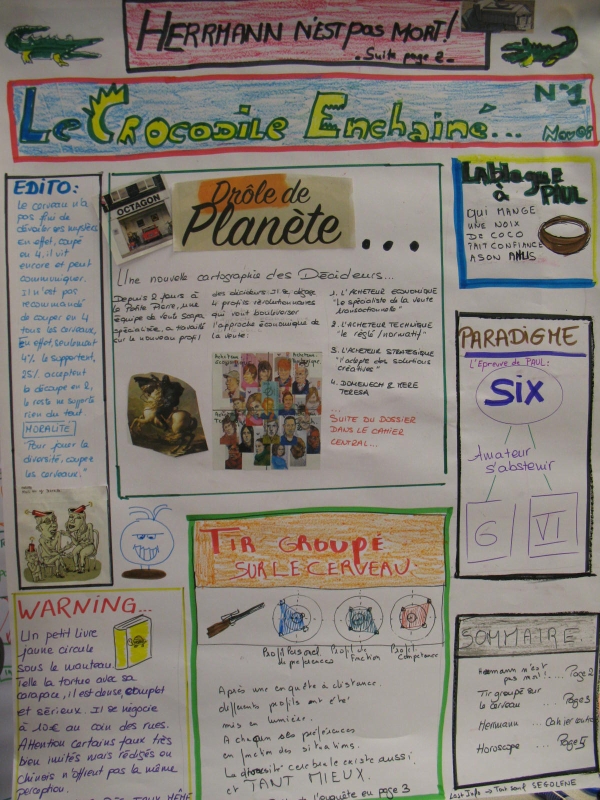 HERRMANN N'EST PAS MORT!
- Suite page 2 -
Le CROCODILE ENCHAINÉ...
N°1
Nov 08
EDITO:
Le cerveau n'a
pas fini de
dévoiler ses mystères
en effet, coupé
en 4, il vit
encore et peut
communiquer.
Il n'est pas
recommandé
de couper en 4
tous les cerveaux,
En effet, seulement
4% le supportent,
25% acceptent
la découpe en 2,
le reste ne supporte
rien du tout.
MORALITÉ
"Pour jouer la
diversité, coupez
les cerveaux."
OCTAGON
DRÔLE de
Planète
...
Une nouvelle cartographie des Décideurs...
Depuis 2 jours à
la Petite Pierre, une
équipe de
spécialisée, a travaillé
sur le nouveau profil
des décideurs. Il se dégage
4 profils révolutionnaires
qui vont bouleverser
l'approche économique de
la vente:
1. L'ACHETEUR ECONOMIQUE
"le spécialiste de la vente
transactionnelle"
2. L'ACHETEUR TECHNIQUE
"le réglo/normatif"
3. L'ACHETEUR STRATEGIQUE
"l'adepte des solutions
créatives"
4. DOMENECH & MERE
TERESA
...
SUITE DU DOSSIER
DANS LE CAHIER
CENTRAL...
LA blague
à PAUL
QUI MANGE
UNE NOIX
DE COCO
FAIT CONFIANCE
A SON ANUS
PARADIGME
L'Epreuve de PAUL:
SIX
Amateur
s'abstenir
6
VI
WARNING...
Un petit livre
jaune circule
sous le manteau.
Telle la tortue avec sa
carapace, il est dense, complet
et sérieux. Il se négocie
à 10€ au coin des rues.
Attention certains faux très
bien imités mais rédigés en
chinois n'offrent pas la même
perception.
TIR GROUPÉ
SUR LE CERVEAU.
Profil Personnel
de préférences
Profil de
fonction
Profil
Compétence
Après une enquête à distance,
différents profils ont été
mis en lumière.
A chacun ses préférences
en fonction des situations.
La diversité cérébrale existe aussi
et TANT MIEUX.
de l'enquête en page 3
SOMMAIRE.
Herrmann n'est
pas mort!..... Page 2
Tir groupé sur
le cerveau .... Page 3
Herrmann ... Cahier central
Horoscope ... Page 5
Last Info → Tout sauf SEGOLENE